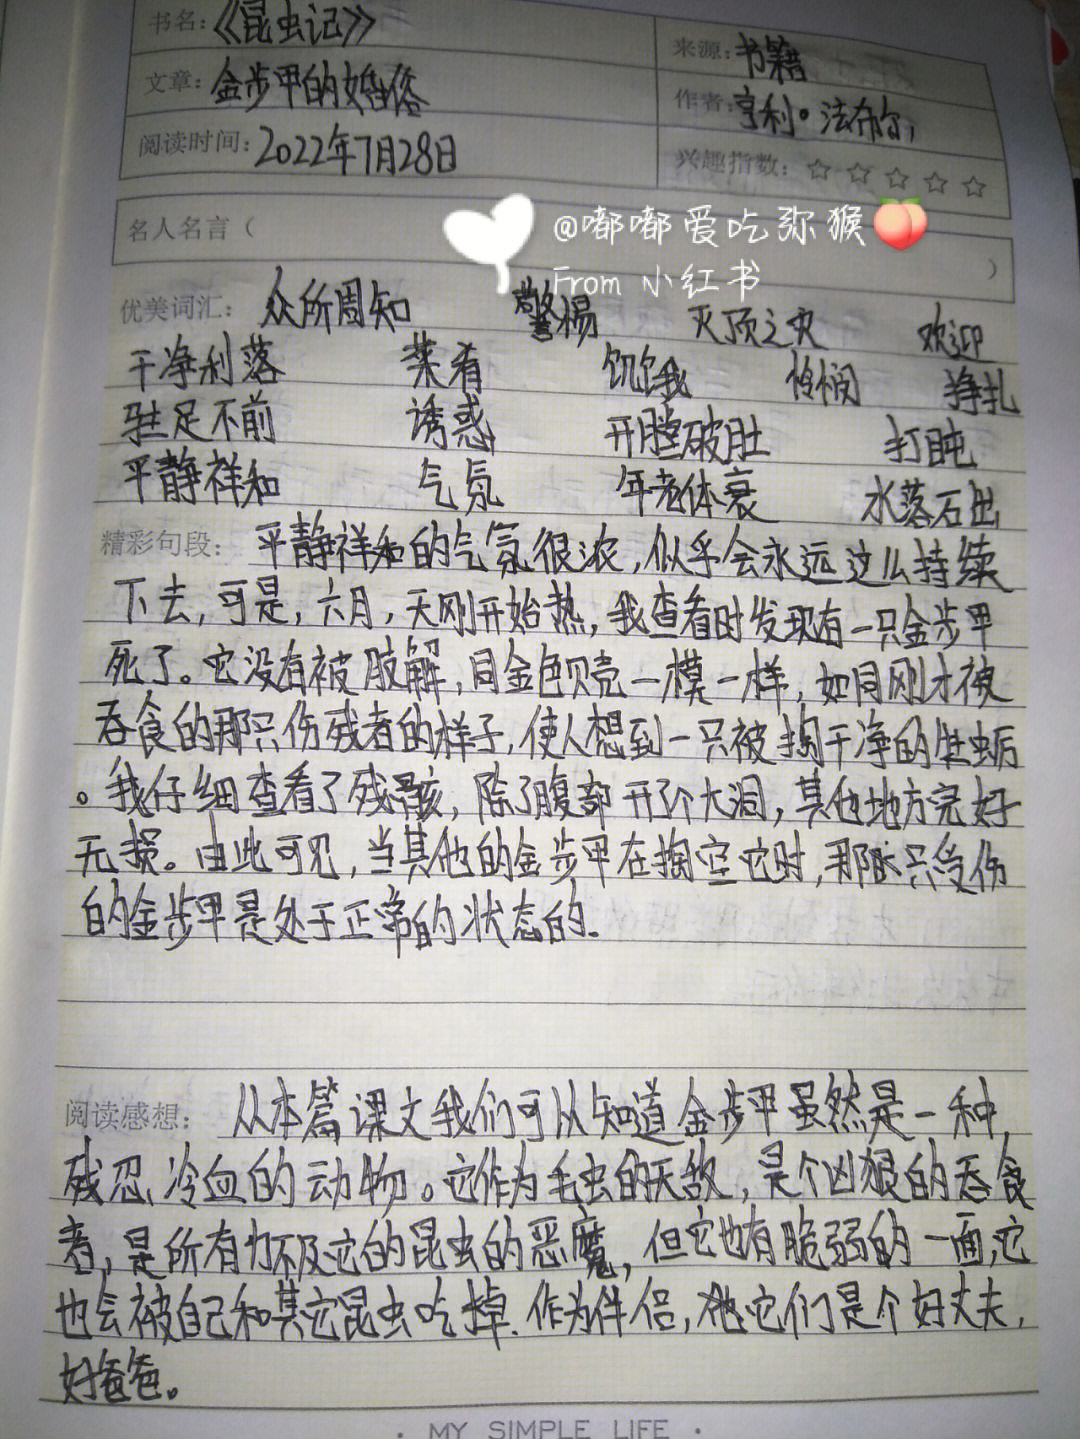 书名：《昆虫记》
来源：书籍
文章：金步甲的婚俗
作者：亨利。法布尔，
阅读时间：2022年7月28日
兴趣指数：☆ ☆ ☆ ☆ ☆
名人名言（
）
@嘟嘟爱吃弥猴🍑
From 小红书
优美词汇： 众所周知 警惕 灭顶之灾 欢迎
干净利落 菜肴 饥饿 怜悯 挣扎
驻足不前 诱惑 开膛破肚 打盹
平静祥和 气氛 年老体衰 水落石出
精彩句段： 平静祥和的气氛很浓，似乎会永远这么持续
下去，可是，六月，天刚开始热，我查看时发现有一只金步甲
死了。它没有被肢解，同金色贝壳一模一样，如同刚才被
吞食的那只伤残者的样子，使人想到一只被掏干净的牡蛎
。我仔细查看了残骸，除了腹部开了个大洞，其他地方完好
无损。由此可见，当其他的金步甲在掏空它时，那只受伤
的金步甲是处于正常的状态的.
阅读感想： 从本篇课文我们可以知道金步甲虽然是一种
残忍、冷血的动物。它作为毛虫的天敌，是个凶狠的吞食
者，是所有力不及它的昆虫的恶魔，但它也有脆弱的一面，它
也会被自己和其它昆虫吃掉.作为伴侣，它们是个好丈夫，
好爸爸。
· MY SIMPLE LIFE ·